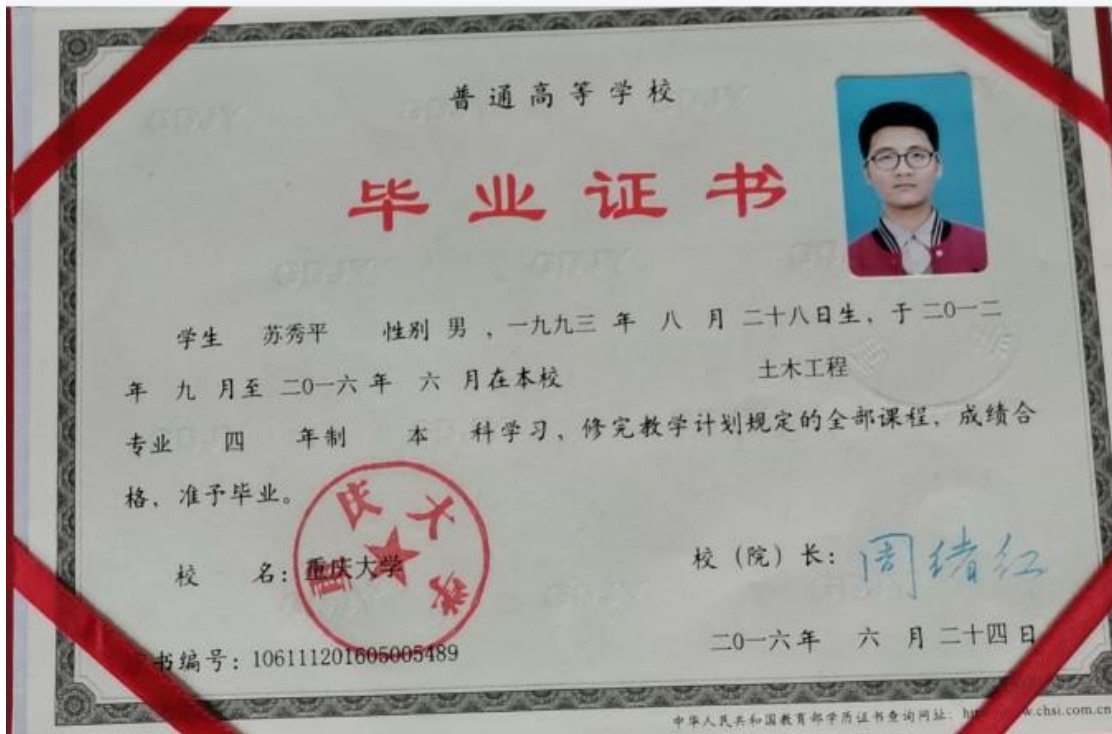 普通高等学校
毕业证书
学生 苏秀平 性别 男 ，一九九三 年 八 月 二十八日生，于 二0一二
年 九 月至 二0一六 年 六 月在本校 土木工程
专业 四 年制 本 科学习，修完教学计划规定的全部课程，成绩合
格，准予毕业。
重庆大学
校 名：重庆大学
校（院）长：周绪红
书编号：106111201605005489
二0一六年 六 月 二十四 日
中华人民共和国教育部学历证书查询网址：
w.chsi.com.cn